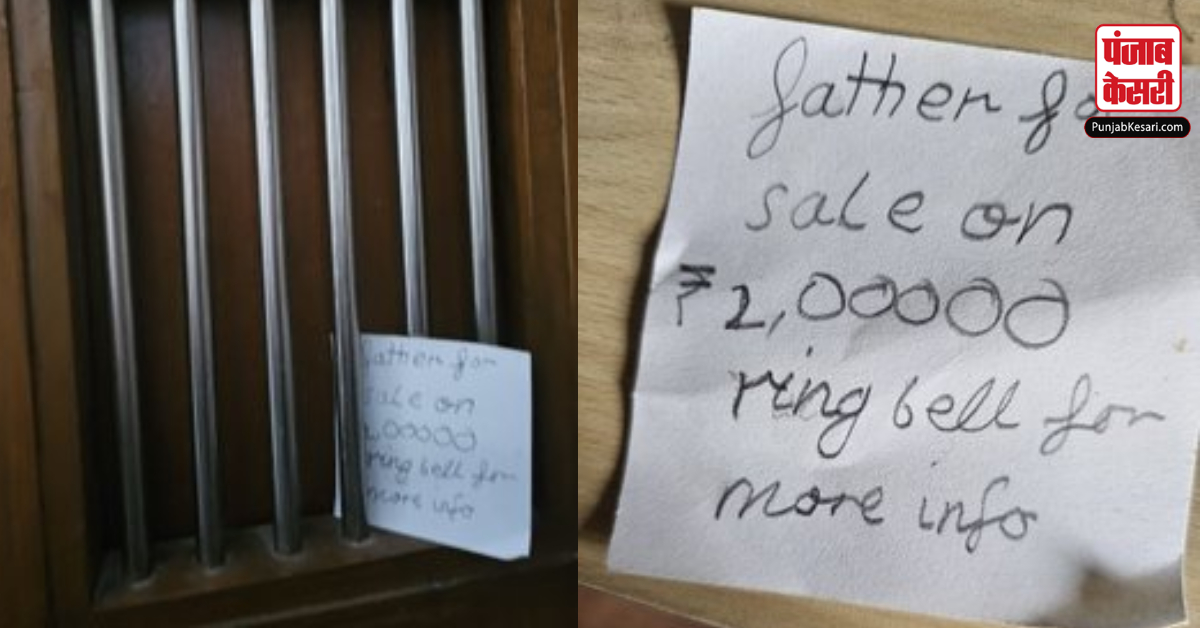 father for
sale on
2,00000
ring bell for
more info
father fo
sale on
₹2,00000
ring bell for
more info
पंजाब
केसरी
PunjabKesari.com